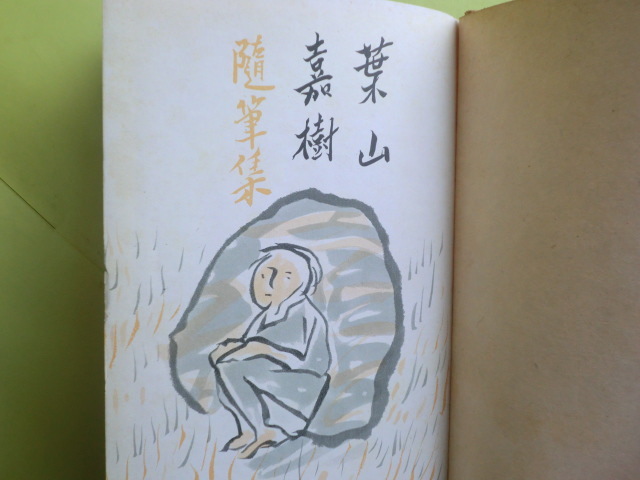 葉山
嘉樹
隨筆集